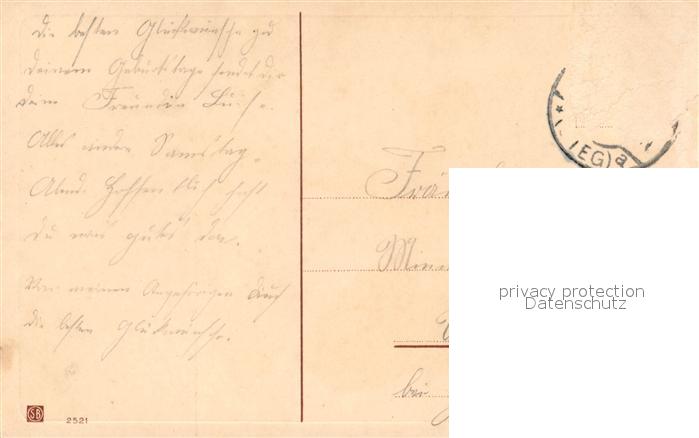 Die besten Glückwünsche zu
deinem Geburtstage sendet dir
deine Freundin Luise.
Alles andere Samstag
Abend. Hoffentlich hast
du was gutes da.
Von meinen Angehörigen auch
die besten Glückwünsche.
SB 2521
(EG) a
Frä
Minn
bei
privacy protection
Datenschutz